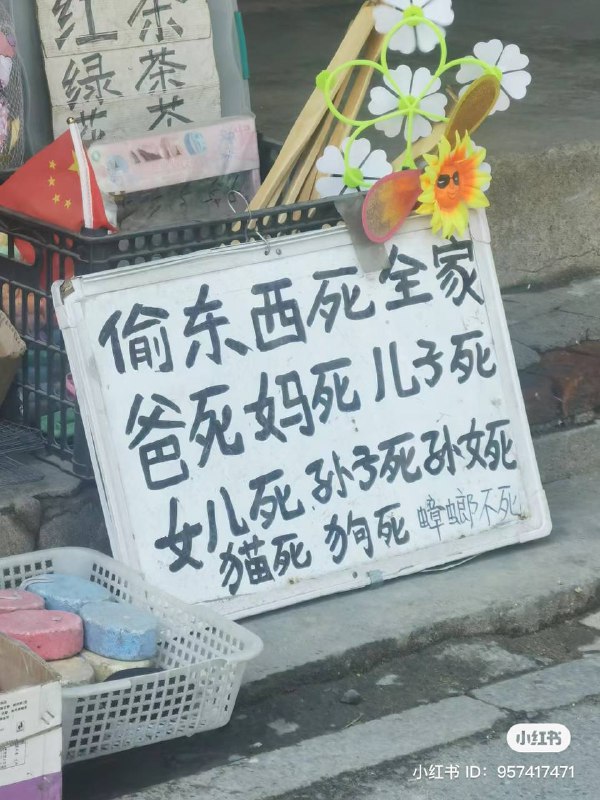 红 茶
绿 茶
偷东西死全家
爸死妈死儿子死
女儿死孙子死孙女死
猫死 狗死 蟑螂不死
小红书
小红书 ID: 957417471